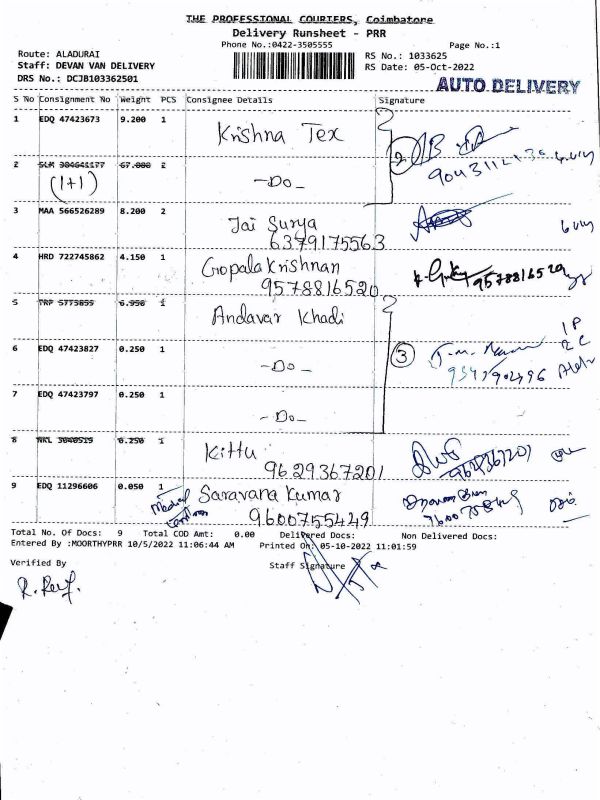 THE PROFESSIONAL COURIERS, Coimbatore
Delivery Runsheet - PRR
Phone No.:0422-3505555
Page No.:1
Route: ALADURAI
Staff: DEVAN VAN DELIVERY
DRS No.: DCJB103362501
RS No.: 1033625
RS Date: 05-Oct-2022
AUTO DELIVERY
S No Consignment No Weight PCS Consignee Details Signature
1 EDQ 47423673 9.200 1 Krishna Tex
2 SLM 304641177 67.000 2 -Do-
(1+1)
2
3 MAA 566526289 8.200 2 Jai Surya
6379175563
4 HRD 722745862 4.150 1 Gopala Krishnan
9578816520 9578816520
5 TRP 5773859 6.950 1 Andavar Khadi
6 EDQ 47423827 0.250 1 -Do-
3
7 EDQ 47423797 0.250 1 -Do-
8 NKL 3040519 0.250 1 Kittu
9629367201
9 EDQ 11296606 0.050 1 Saravana Kumar
Medical
9600755449
Total No. Of Docs: 9 Total COD Amt: 0.00 Delivered Docs: Non Delivered Docs:
Entered By :MOORTHYPRR 10/5/2022 11:06:44 AM Printed On: 05-10-2022 11:01:59
Verified By Staff Signature